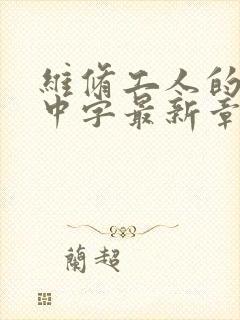 維脩工人的
中字最新章
蘭超